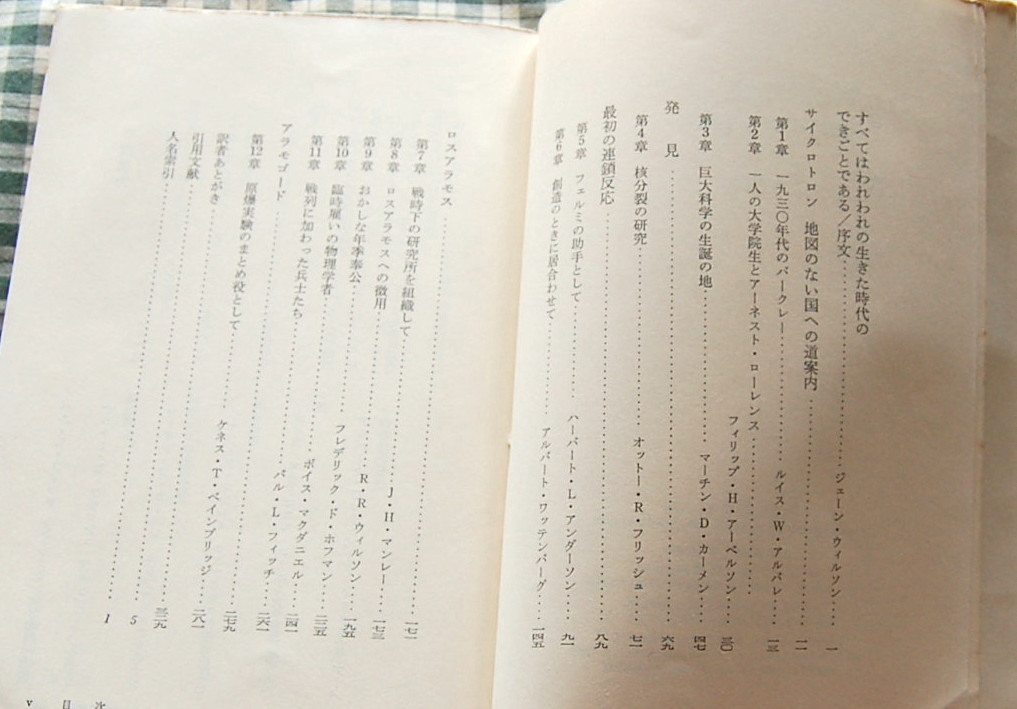 すべてはわれわれの生きた時代の
できごとである／序文……ジェーン・ウィルソン…… 一
サイクロトロン　地図のない国への道案内…… 一一
第1章　一九三〇年代のバークレー……ルイス・W・アルバレ…… 一三
第2章　一人の大学院生とアーネスト・ローレンス……
フィリップ・H・アーベルソン…… 三〇
第3章　巨大科学の生誕の地……マーチン・D・カーメン…… 四七
発　見…… 六九
第4章　核分裂の研究……オットー・R・フリッシュ…… 七一
最初の連鎖反応…… 八九
第5章　フェルミの助手として……ハーバート・L・アンダーソン…… 九一
第6章　創造のときに居合わせて……アルバート・ワッテンバーグ…… 一四五
ロスアラモス…… 一七一
第7章　戦時下の研究所を組織して……J・H・マンレー…… 一七三
第8章　ロスアラモスへの徴用……R・R・ウィルソン…… 一九五
第9章　おかしな年季奉公……フレデリック・ド・ホフマン…… 二三五
第10章　臨時雇いの物理学者……ボイス・マクダニエル…… 二四一
第11章　戦列に加わった兵士たち……バル・L・フィッチ…… 二六一
アラモゴード…… 二七九
第12章　原爆実験のまとめ役として……ケネス・T・ベインブリッジ…… 二八一
訳者あとがき……
引用文献…… 5
人名索引…… 1
v　目　次